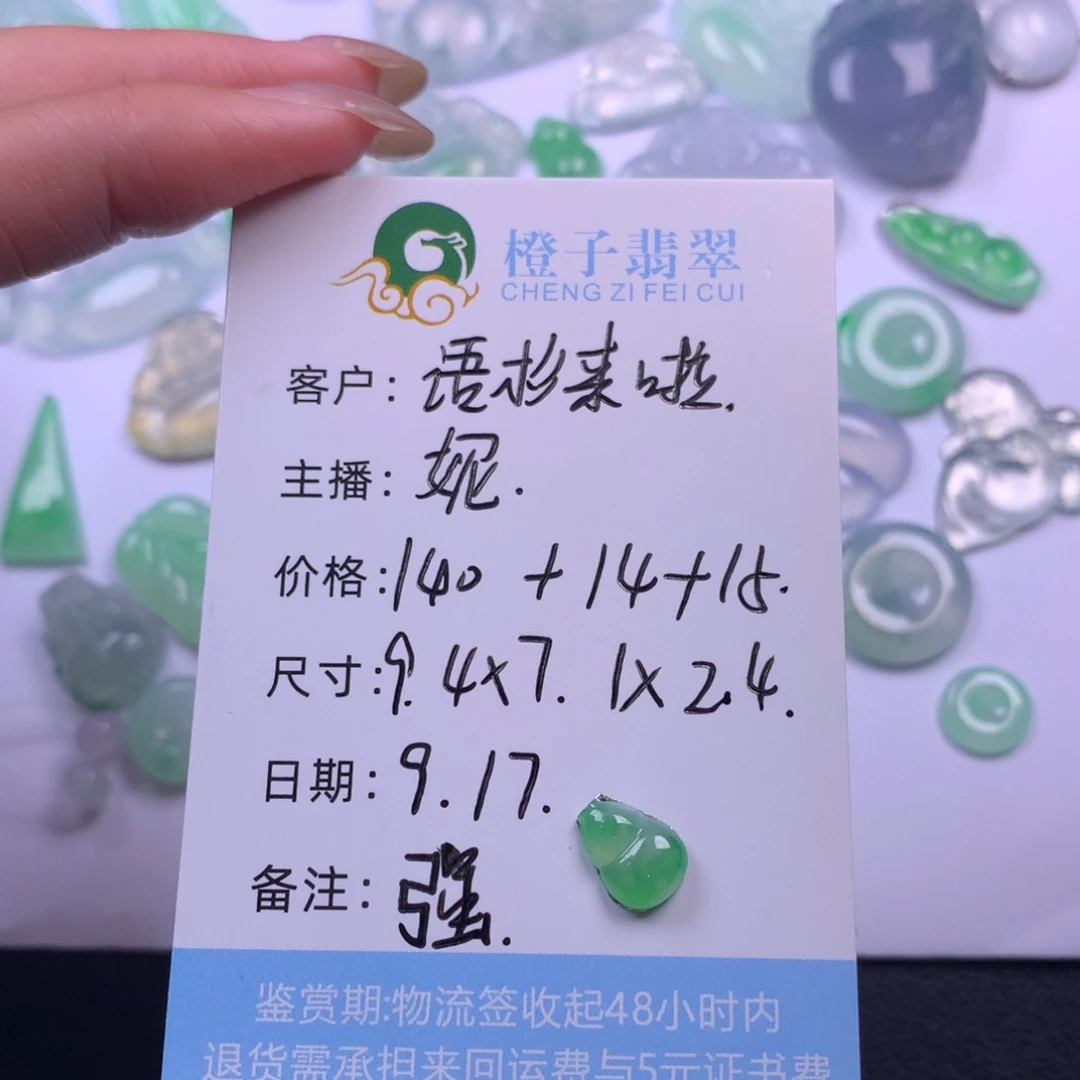 橙子翡翠
CHENG ZI FEI CUI
客户：语杉来啦.
主播：妮.
价格：140 + 14+15.
尺寸：9.4x7.1x2.4.
日期：9.17.
备注：强.
鉴赏期:物流签收起48小时内
退货需承担来回运费与5元证书费